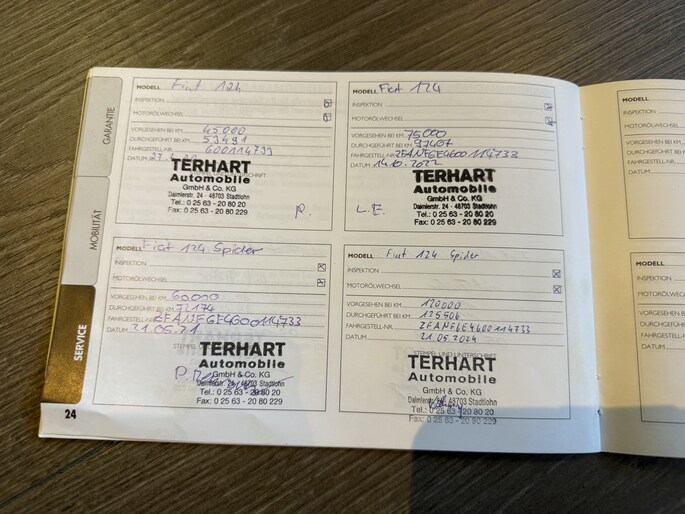 GARANTIE
MOBILITÄT
SERVICE
24
MODELL Fiat 124
INSPEKTION
MOTORÖLWECHSEL
VORGESEHEN BEI KM 45000
DURCHGEFÜHRT BEI KM 53491
FAHRGESTELL-NR.
DATUM
TERHART
Automobile
GmbH & Co. KG
Daimlerstr. 24 · 48703 Stadtlohn
Tel.: 0 25 63 - 20 80 20
Fax: 0 25 63 - 20 80 229
MODELL Fiat 124
INSPEKTION
MOTORÖLWECHSEL
VORGESEHEN BEI KM 75000
DURCHGEFÜHRT BEI KM
FAHRGESTELL-NR. ZFANFGE4600114733
DATUM 14.10.2022
TERHART
Automobile
GmbH & Co. KG
Daimlerstr. 24 · 48703 Stadtlohn
Tel.: 0 25 63 - 20 80 20
Fax: 0 25 63 - 20 80 229
L.E.
MODELL Fiat 124 Spider
INSPEKTION
MOTORÖLWECHSEL
VORGESEHEN BEI KM 60000
DURCHGEFÜHRT BEI KM 72174
FAHRGESTELL-NR. ZFANFGE4600114733
DATUM 21.05.21
TERHART
Automobile
GmbH & Co. KG
Daimlerstr. 24 · 48703 Stadtlohn
Tel.: 0 25 63 - 20 80 20
Fax: 0 25 63 - 20 80 229
MODELL Fiat 124 Spider
INSPEKTION
MOTORÖLWECHSEL
VORGESEHEN BEI KM 120000
DURCHGEFÜHRT BEI KM 125506
FAHRGESTELL-NR. ZFANFGE4600114733
DATUM 21.05.2024
STEMPEL UND UNTERSCHRIFT
TERHART
Automobile
GmbH & Co. KG
Daimlerstr. 24 · 48703 Stadtlohn
Tel.: 0 25 63 - 20 80 20
Fax: 0 25 63 - 20 80 229
MODELL
INSPEKTION
MOTORÖLWECH
VORGESEHEN BE
DURCHGEFÜHRT
FAHRGESTELL-N
DATUM
MODELL
INSPEKTION
DATUM